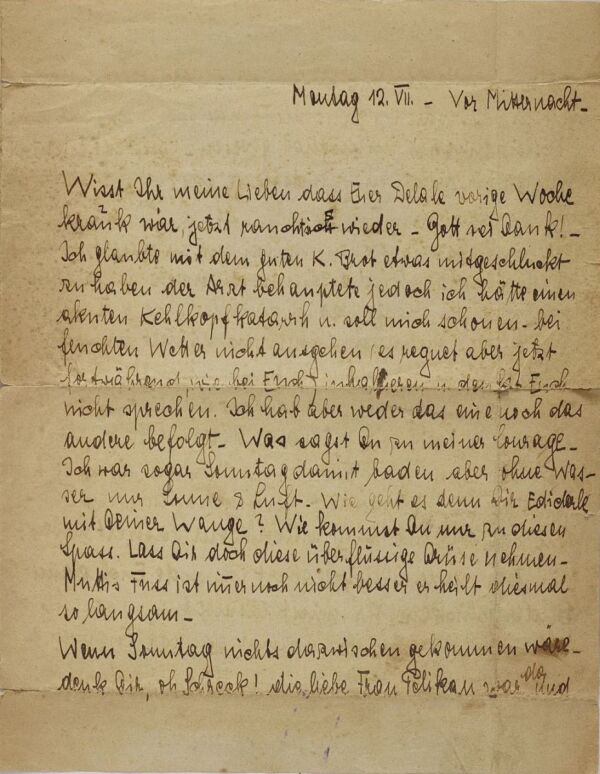 Montag 12. VII. – Vor Mitternacht –
Wisst Ihr meine Lieben dass Euer Delale vorige Woche
krank war, jetzt wieder – Gott sei Dank! –
Ich glaubte mit dem guten K. Brot etwas mitgeschluckt
zu haben der Arzt behauptete jedoch ich hätte einen
akuten Kehlkopfkatarrh u. soll mich schonen – bei
feuchten Wetter nicht ausgehen (es regnet aber jetzt
fortwährend, wie bei Euch) inhalieren u.
nicht sprechen. Ich hab aber weder das eine noch das
andere befolgt – Was sagst Du zu meiner Courage –
Ich war sogar Sonntag damit baden aber ohne Was-
ser nur Sonne & Luft – Wie geht es denn Dir Ediderle
mit Deiner Wange? Wie kommst Du nur zu diesen
Spass. Lass Dir doch diese überflüssige Drüse nehmen –
Muttis Fuss ist immer noch nicht besser er heilt diesmal
so langsam –
Wenn Sonntag nichts dazwischen gekommen wäre –
denk Dir, oh Schreck! die liebe Frau Pelikan war da und